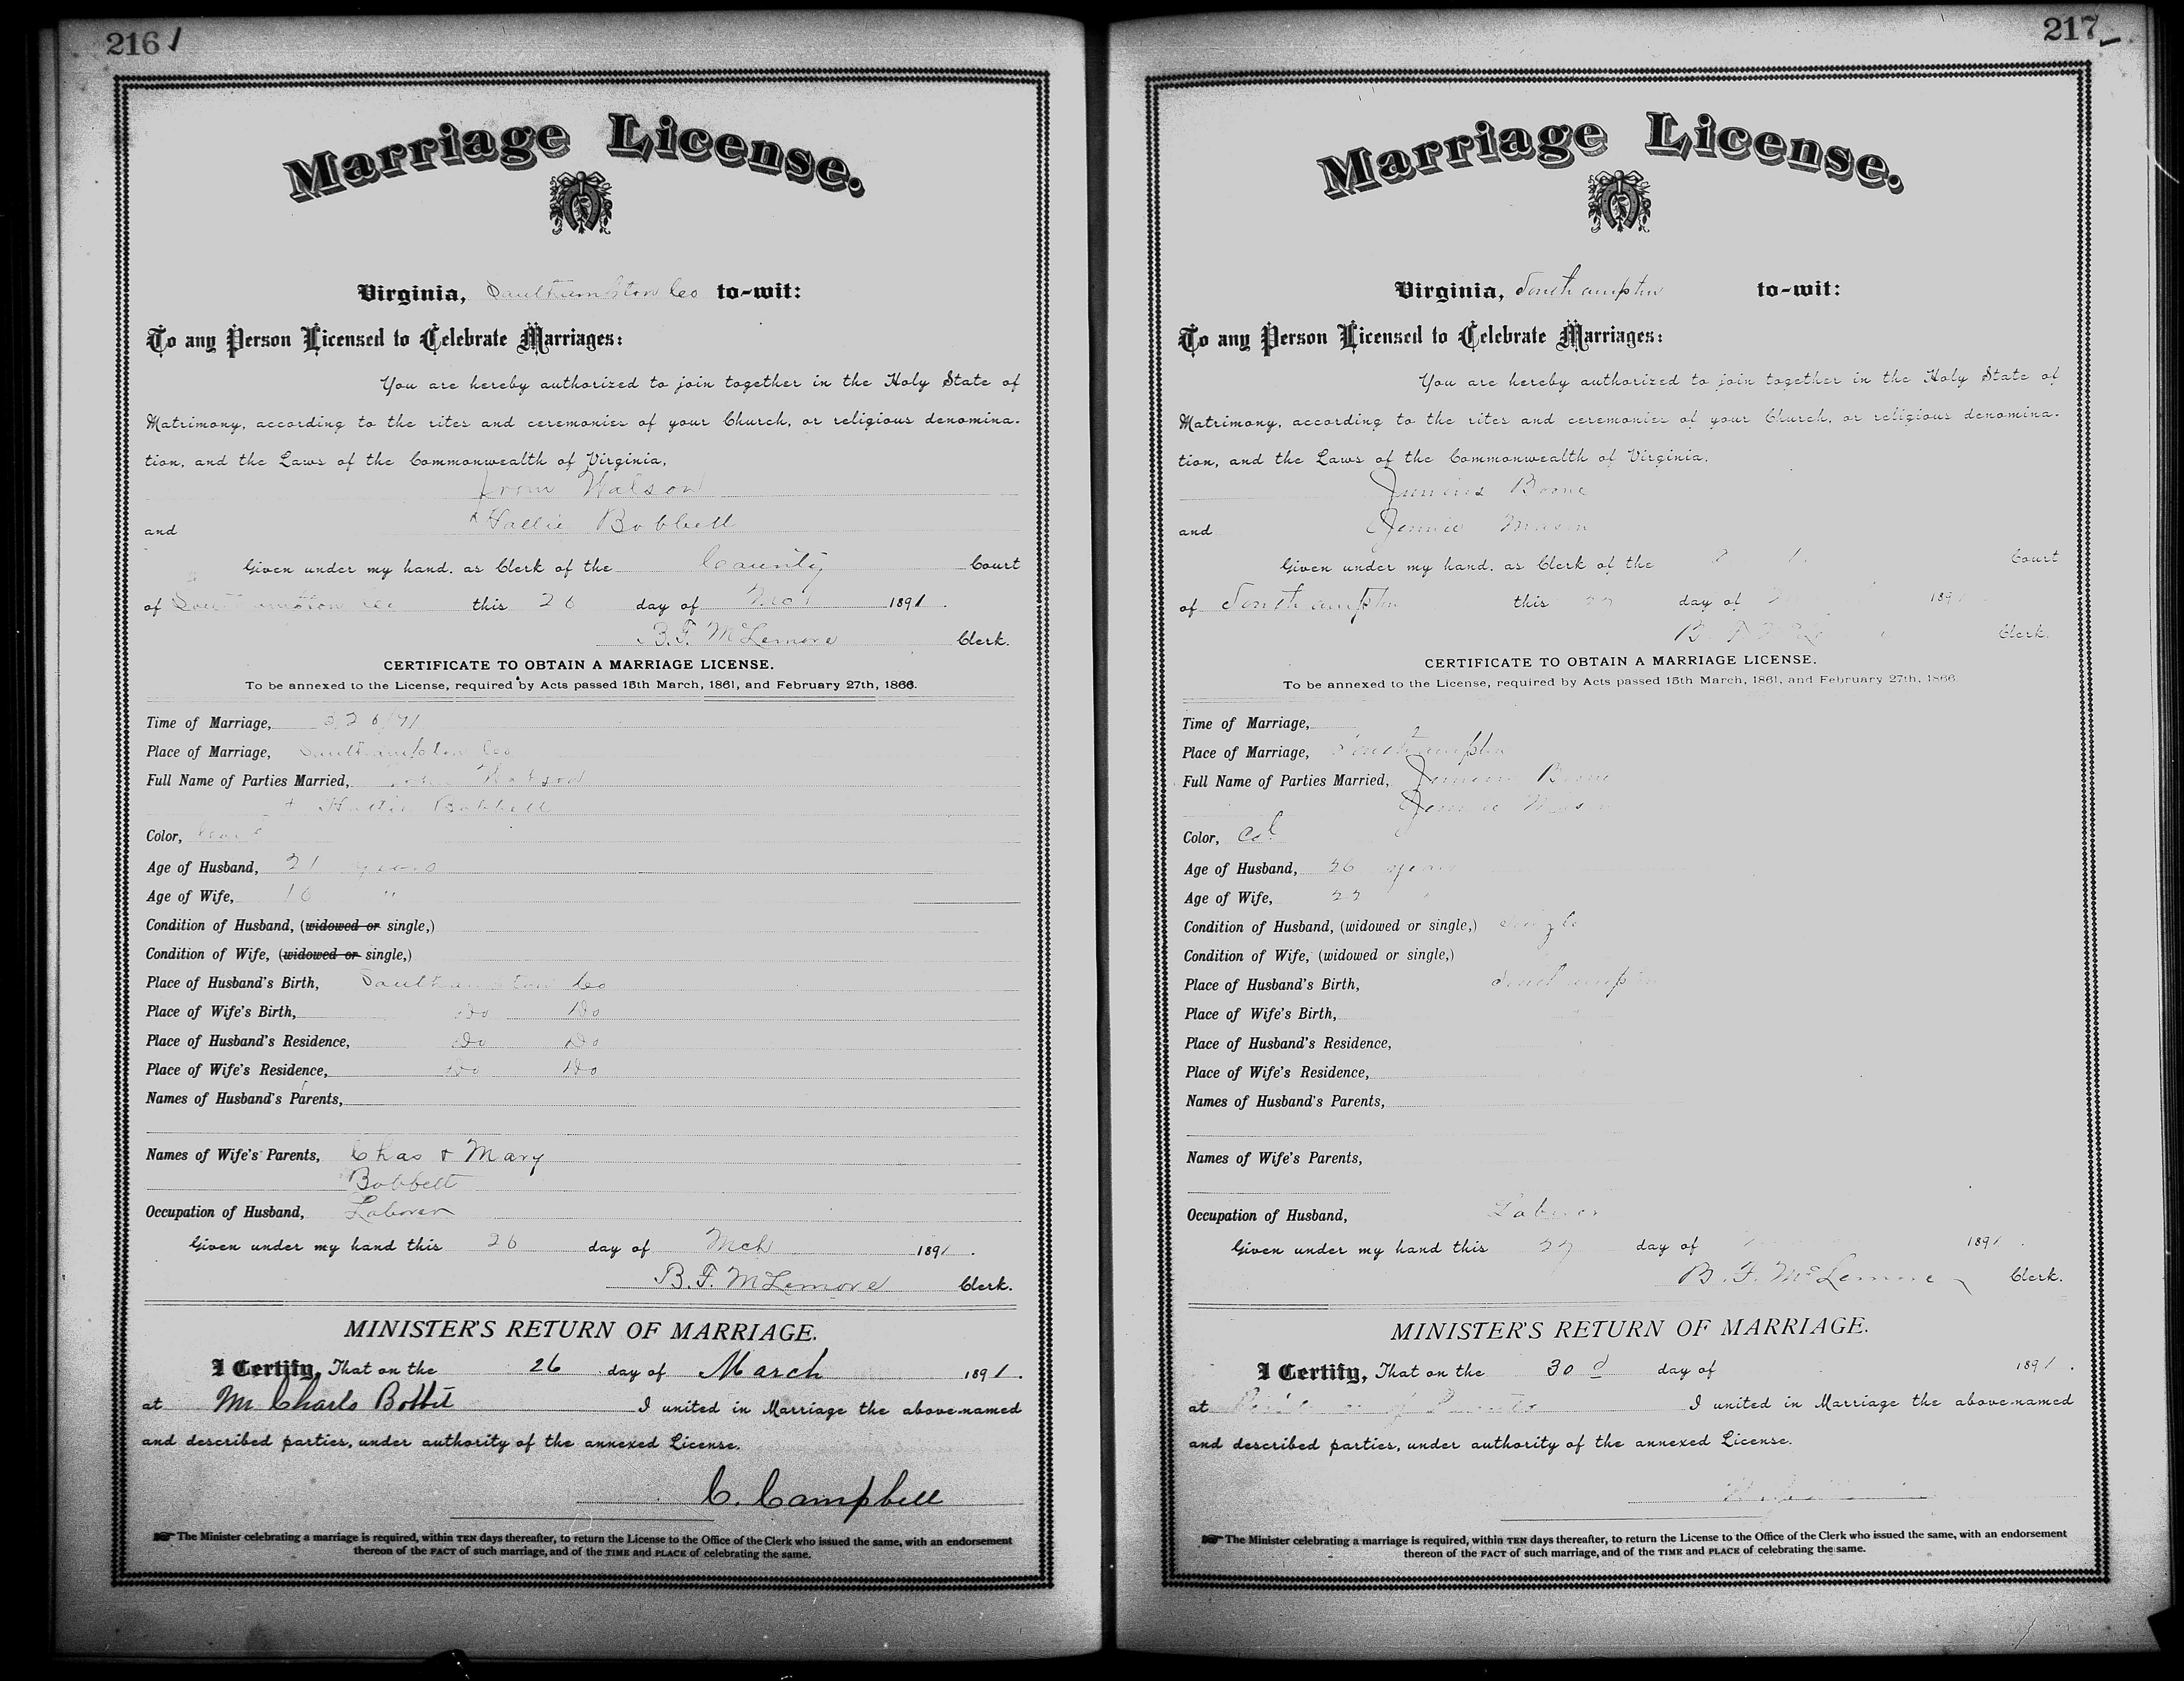 216
Marriage License.
Virginia, Southampton Co to-wit:
To any Person Licensed to Celebrate Marriages:
You are hereby authorized to join together in the Holy State of
Matrimony, according to the rites and ceremonies of your Church, or religious denomina-
tion, and the Laws of the Commonwealth of Virginia,
Watson
and Hallie Bobbett
Given under my hand, as Clerk of the County Court
of Southampton Co this 26 day of 1891.
B. F. McLemore Clerk.
CERTIFICATE TO OBTAIN A MARRIAGE LICENSE.
To be annexed to the License, required by Acts passed 15th March, 1861, and February 27th, 1866.
Time of Marriage, 3/26/91
Place of Marriage, Southampton Co
Full Name of Parties Married, Watson
+ Hattie Bobbett
Color,
Age of Husband, 21 years
Age of Wife, 16 "
Condition of Husband, (widowed or single,)
Condition of Wife, (widowed or single,)
Place of Husband's Birth, Southampton Co
Place of Wife's Birth, Do Do
Place of Husband's Residence, Do Do
Place of Wife's Residence, Do Do
Names of Husband's Parents,
Names of Wife's Parents, Chas + Mary
Bobbett
Occupation of Husband, Laborer
Given under my hand this 26 day of Mch 1891.
B. F. McLemore Clerk.
MINISTER'S RETURN OF MARRIAGE.
I Certify, That on the 26 day of March 1891.
at Mr Charls Bobbit I united in Marriage the above-named
and described parties, under authority of the annexed License.
C. Campbell
The Minister celebrating a marriage is required, within TEN days thereafter, to return the License to the Office of the Clerk who issued the same, with an endorsement
thereon of the FACT of such marriage, and of the TIME and PLACE of celebrating the same.
217
Marriage License.
Virginia, Southampton to-wit:
To any Person Licensed to Celebrate Marriages:
You are hereby authorized to join together in the Holy State of
Matrimony, according to the rites and ceremonies of your Church, or religious denomina-
tion, and the Laws of the Commonwealth of Virginia,
Junious Boone
and Jennie Mason
Given under my hand, as Clerk of the Court
of Southampton this 27 day of 189
B. F. Clerk.
CERTIFICATE TO OBTAIN A MARRIAGE LICENSE.
To be annexed to the License, required by Acts passed 15th March, 1861, and February 27th, 1866.
Time of Marriage,
Place of Marriage, Southampton
Full Name of Parties Married, Junious Boone
Jennie Mason
Color, Col
Age of Husband, 26 years
Age of Wife, 22
Condition of Husband, (widowed or single,) Single
Condition of Wife, (widowed or single,)
Place of Husband's Birth, Southampton
Place of Wife's Birth,
Place of Husband's Residence,
Place of Wife's Residence,
Names of Husband's Parents,
Names of Wife's Parents,
Occupation of Husband, Laborer
Given under my hand this 27 day of 1891.
B. F. McLemore Clerk.
MINISTER'S RETURN OF MARRIAGE.
I Certify, That on the 30 d day of 1891.
at I united in Marriage the above-named
and described parties, under authority of the annexed License.
The Minister celebrating a marriage is required, within TEN days thereafter, to return the License to the Office of the Clerk who issued the same, with an endorsement
thereon of the FACT of such marriage, and of the TIME and PLACE of celebrating the same.